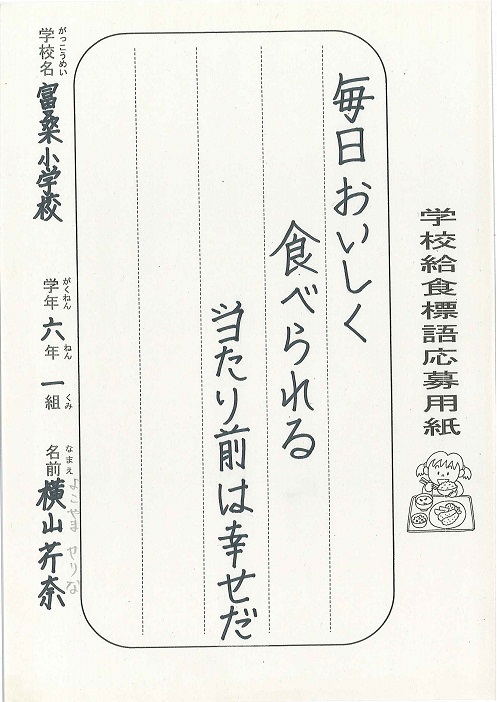 学校給食標語応募用紙
毎日おいしく
食べられる
当たり前は幸せだ
がっこうめい
学校名 富桑小学校
がくねん ねん くみ
学年 六年 一組
なまえ よこやま せりな
名前 横山芹奈